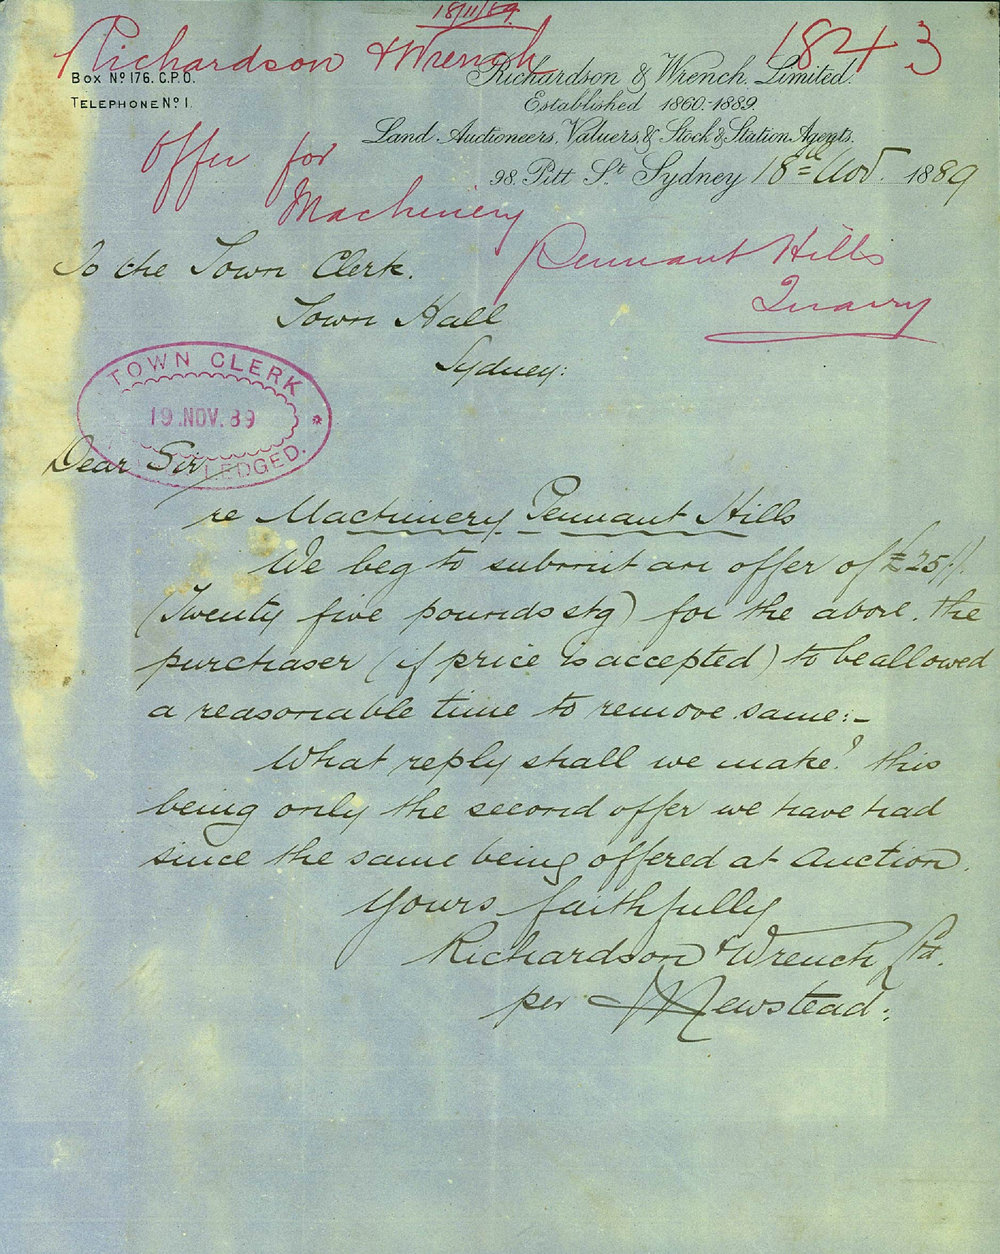 18/11/89
Richardson & Wrench 1843
Box No 176. G.P.O.
Telephone No 1.
Richardson & Wrench, Limited.
Established 1860-1889.
Land Auctioneers, Valuers, & Stock & Station Agents.
98. Pitt St. Sydney 18th Nov. 1889
Offer for
Machinery
Pennant Hills
Quarry
To the Town Clerk.
Town Hall
Sydney:
TOWN CLERK
19.NOV.89
LEDGED.
Dear Sir
re Machinery Pennant Hills
We beg to submit an offer of £25./.
(Twenty five pounds stg) for the above. the
purchaser (if price is accepted) to be allowed
a reasonable time to remove same:-
What reply shall we make? this
being only the second offer we have had
since the same being offered at Auction.
Yours faithfully
Richardson & Wrench Ltd.
per Newstead: